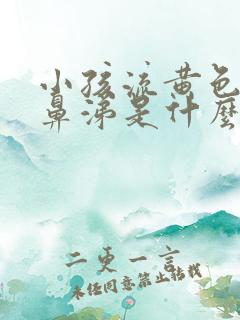 小孩流黄色
鼻涕是什麼
二更一言
未经同意禁止转载